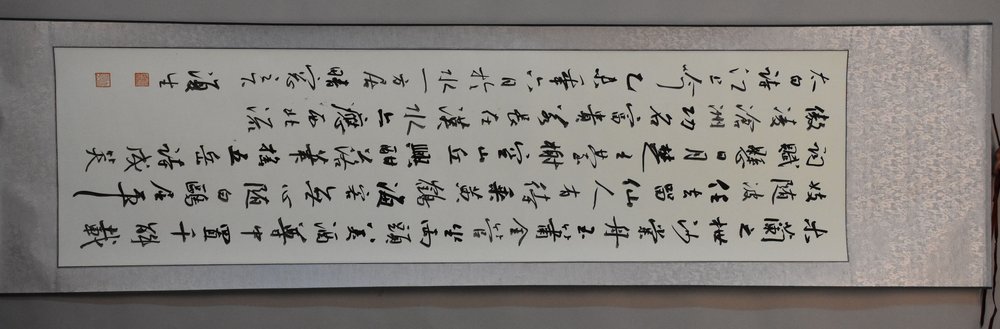 木蘭之枻沙棠舟玉簫金管坐兩頭美酒尊中置千斛載
妓隨波任去留仙人有待乘黃鶴海客無心隨白鷗屈平
詞賦懸日月楚王臺榭空山丘興酣落筆搖五岳詩成笑
傲凌滄洲功名富貴若長在漢水亦應西北流
太白詩江上吟乙未年六月於水一方居晴窗之下